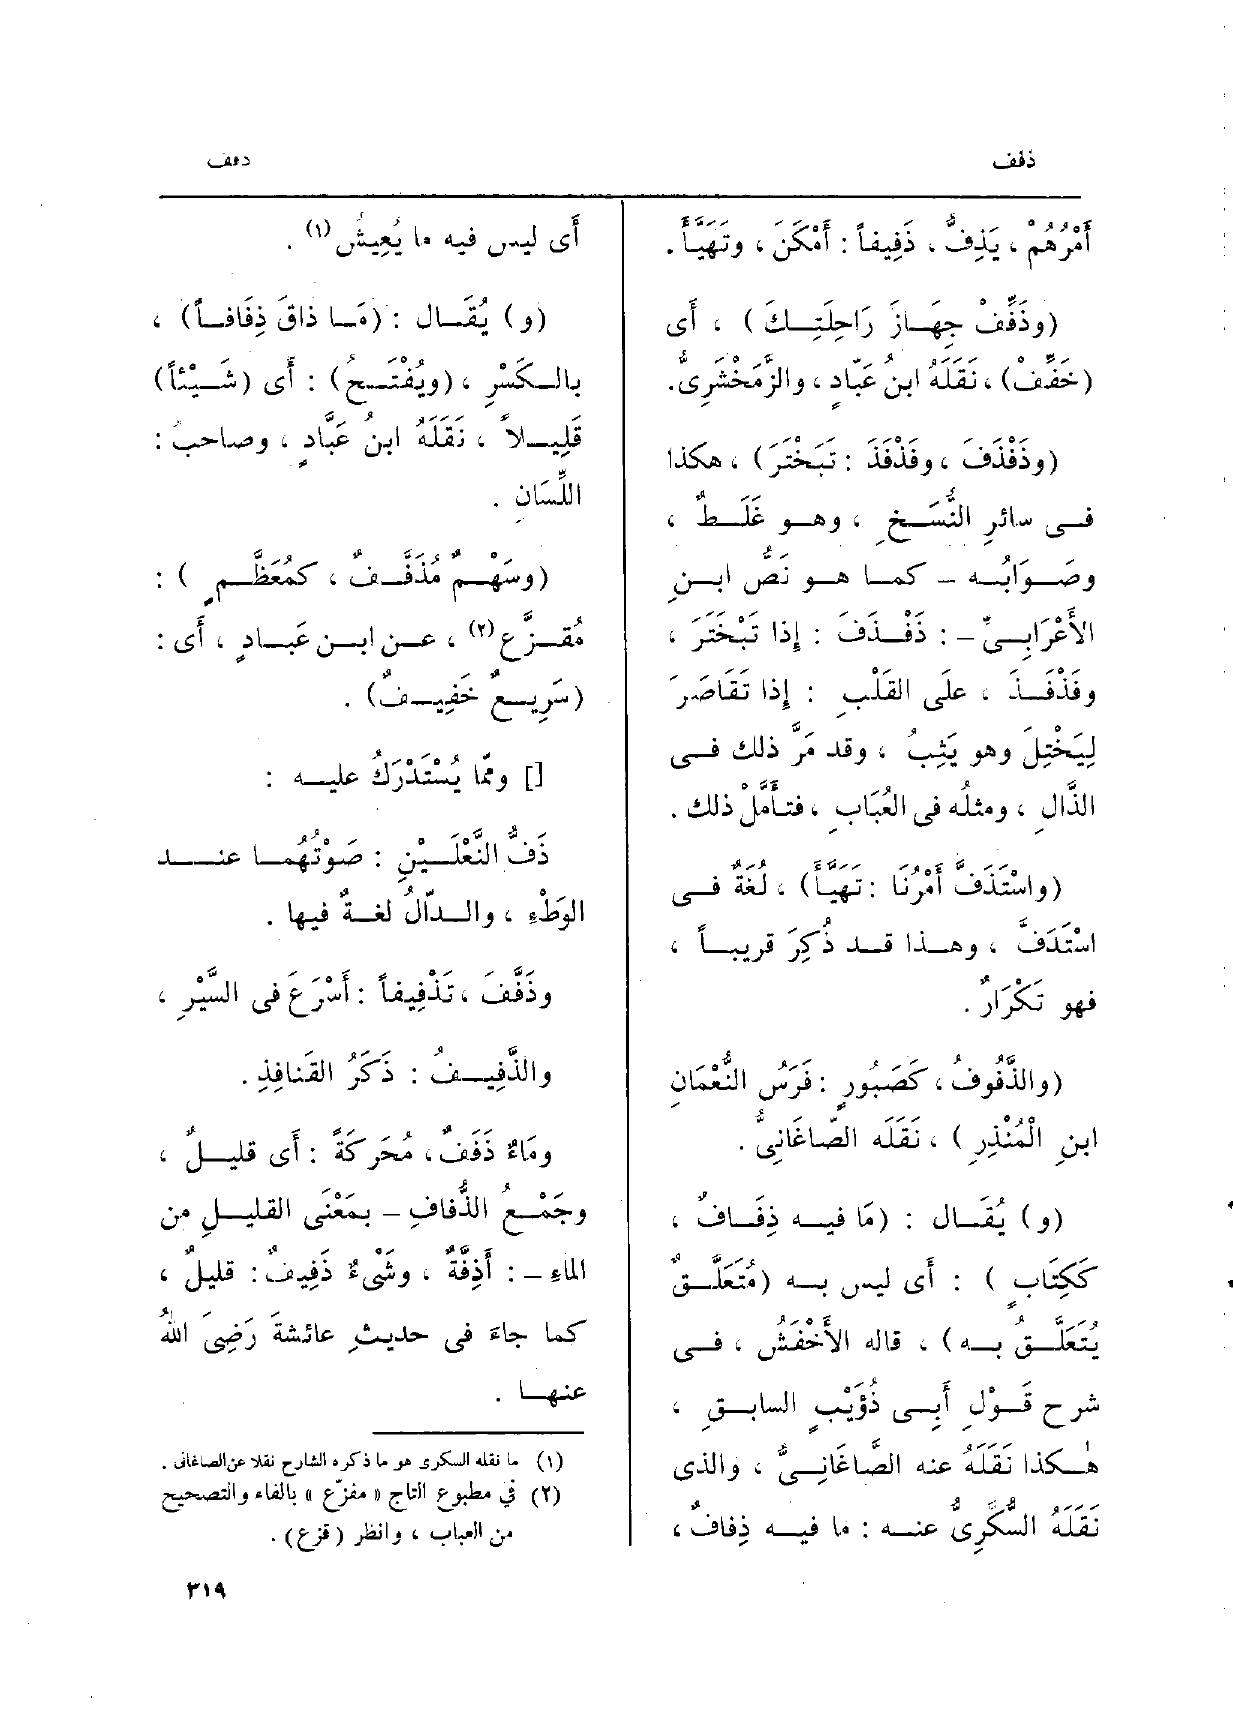 ذفف
ذفف
أَمْرُهُمْ ، يَذِفُّ ، ذَفِيفاً : أَمْكَنَ ، وتَهَيَّأَ .
(وذَفِّفْ جِهَازَ رَاحِلَتِـكَ ) ، أَى
(خَفِّفْ) ، نَقَلَهُ ابنُ عَبّادٍ ، والزَّمَخْشَرِىُّ .
(وذَفْذَفَ ، وفَذْفَذَ : تَبَخْتَرَ) ، هكذا
فـى سائرِ النُّسَـخِ ، وهـو غَلَـطٌ ،
وصَـوَابُـه – كمـا هـو نَصُّ ابـنِ
الأَعْرَابِـىِّ – : ذَفْـذَفَ : إِذا تَبَخْتَرَ ،
وفَذْفَـذَ ، على القَلْبِ : إِذا تَقَاصَرَ
لِيَخْتِلَ وهو يَثِبُ ، وقد مَرَّ ذلك فـى
الذَّالِ ، ومثلُه فى العُبَابِ ، فتأَمَّلْ ذلك .
(واسْتَذَفَّ أَمْرُنَا : تَهَيَّأَ) ، لُغَةٌ فـى
اسْتَدَفَّ ، وهـذا قـد ذُكِرَ قريبـاً ،
فهو تَكْرَارٌ .
(والذَّفُوفُ ، كَصَبُورٍ : فَرَسُ النُّعْمَانِ
ابنِ الْمُنْذِرِ ) ، نَقَلَه الصّاغَانِىُّ .
(و) يُقَـال : (مَا فيـه ذِفَـافٌ ،
كَكِتَابٍ ) : أَى ليس بـه (مُتَعَلَّـقٌ
يُتَعَلَّـقُ بـه) ، قاله الأَخْفَشُ ، فـى
شرح قَـوْلِ أَبِـى ذُؤَيْبٍ السابـقِ ،
هٰـكذا نَقَلَهُ عنه الصَّاغَانِـىُّ ، والذى
نَقَلَهُ السُّكَّرِىُّ عنـه : ما فيـه ذِفافٌ ،
أَى ليس فيه ما يُعِيشُ (١) .
(و) يُقَـال : (مَـا ذاقَ ذِفَافـاً) ،
بالـكَسْرِ ، (ويُفْتَـحُ) : أَى (شَـيْئاً)
قَلِيـلاً ، نَقَلَهُ ابنُ عَبَّادٍ ، وصاحبُ :
اللِّسَانِ .
(وسَهْـمٌ مُذَفَّـفٌ ، كمُعَظَّـمٍ ) :
مُقَـزَّع (٢) ، عـن ابـن عَبـادٍ ، أَى :
(سَرِيـعٌ خَفِيـفٌ) .
[] وممّا يُسْتَدْرَكُ عليـه :
ذَفُّ النَّعْلَـيْنِ : صَوْتُهُمـا عنـد
الوَطْءِ ، والـدّالُ لغـةٌ فيها .
وذَفَّفَ ، تَذْفِيفاً : أَسْرَعَ فى السَّيْرِ ،
والذَّفِيـفُ : ذَكَرُ القَنافِذِ .
ومَاءٌ ذَفَفٌ ، مُحَركَةً : أَى قليـلٌ ،
وجَمْـعُ الذُّفافِ – بمَعْنَى القليـلِ من
الماءِ – : أَذِفَّةٌ ، وشَىْءٌ ذَفِيفٌ : قليلٌ ،
كما جاءَ فى حديثِ عائشةَ رَضِىَ اللهُ
عنهـا .
(١) ما نقله السكرى هو ما ذكره الشارح نقلا عن الصاغانى .
(٢) فى مطبوع التاج « مفزّع » بالفاء والتصحيح
من العباب ، وانظر (قزع) .
٣١٩